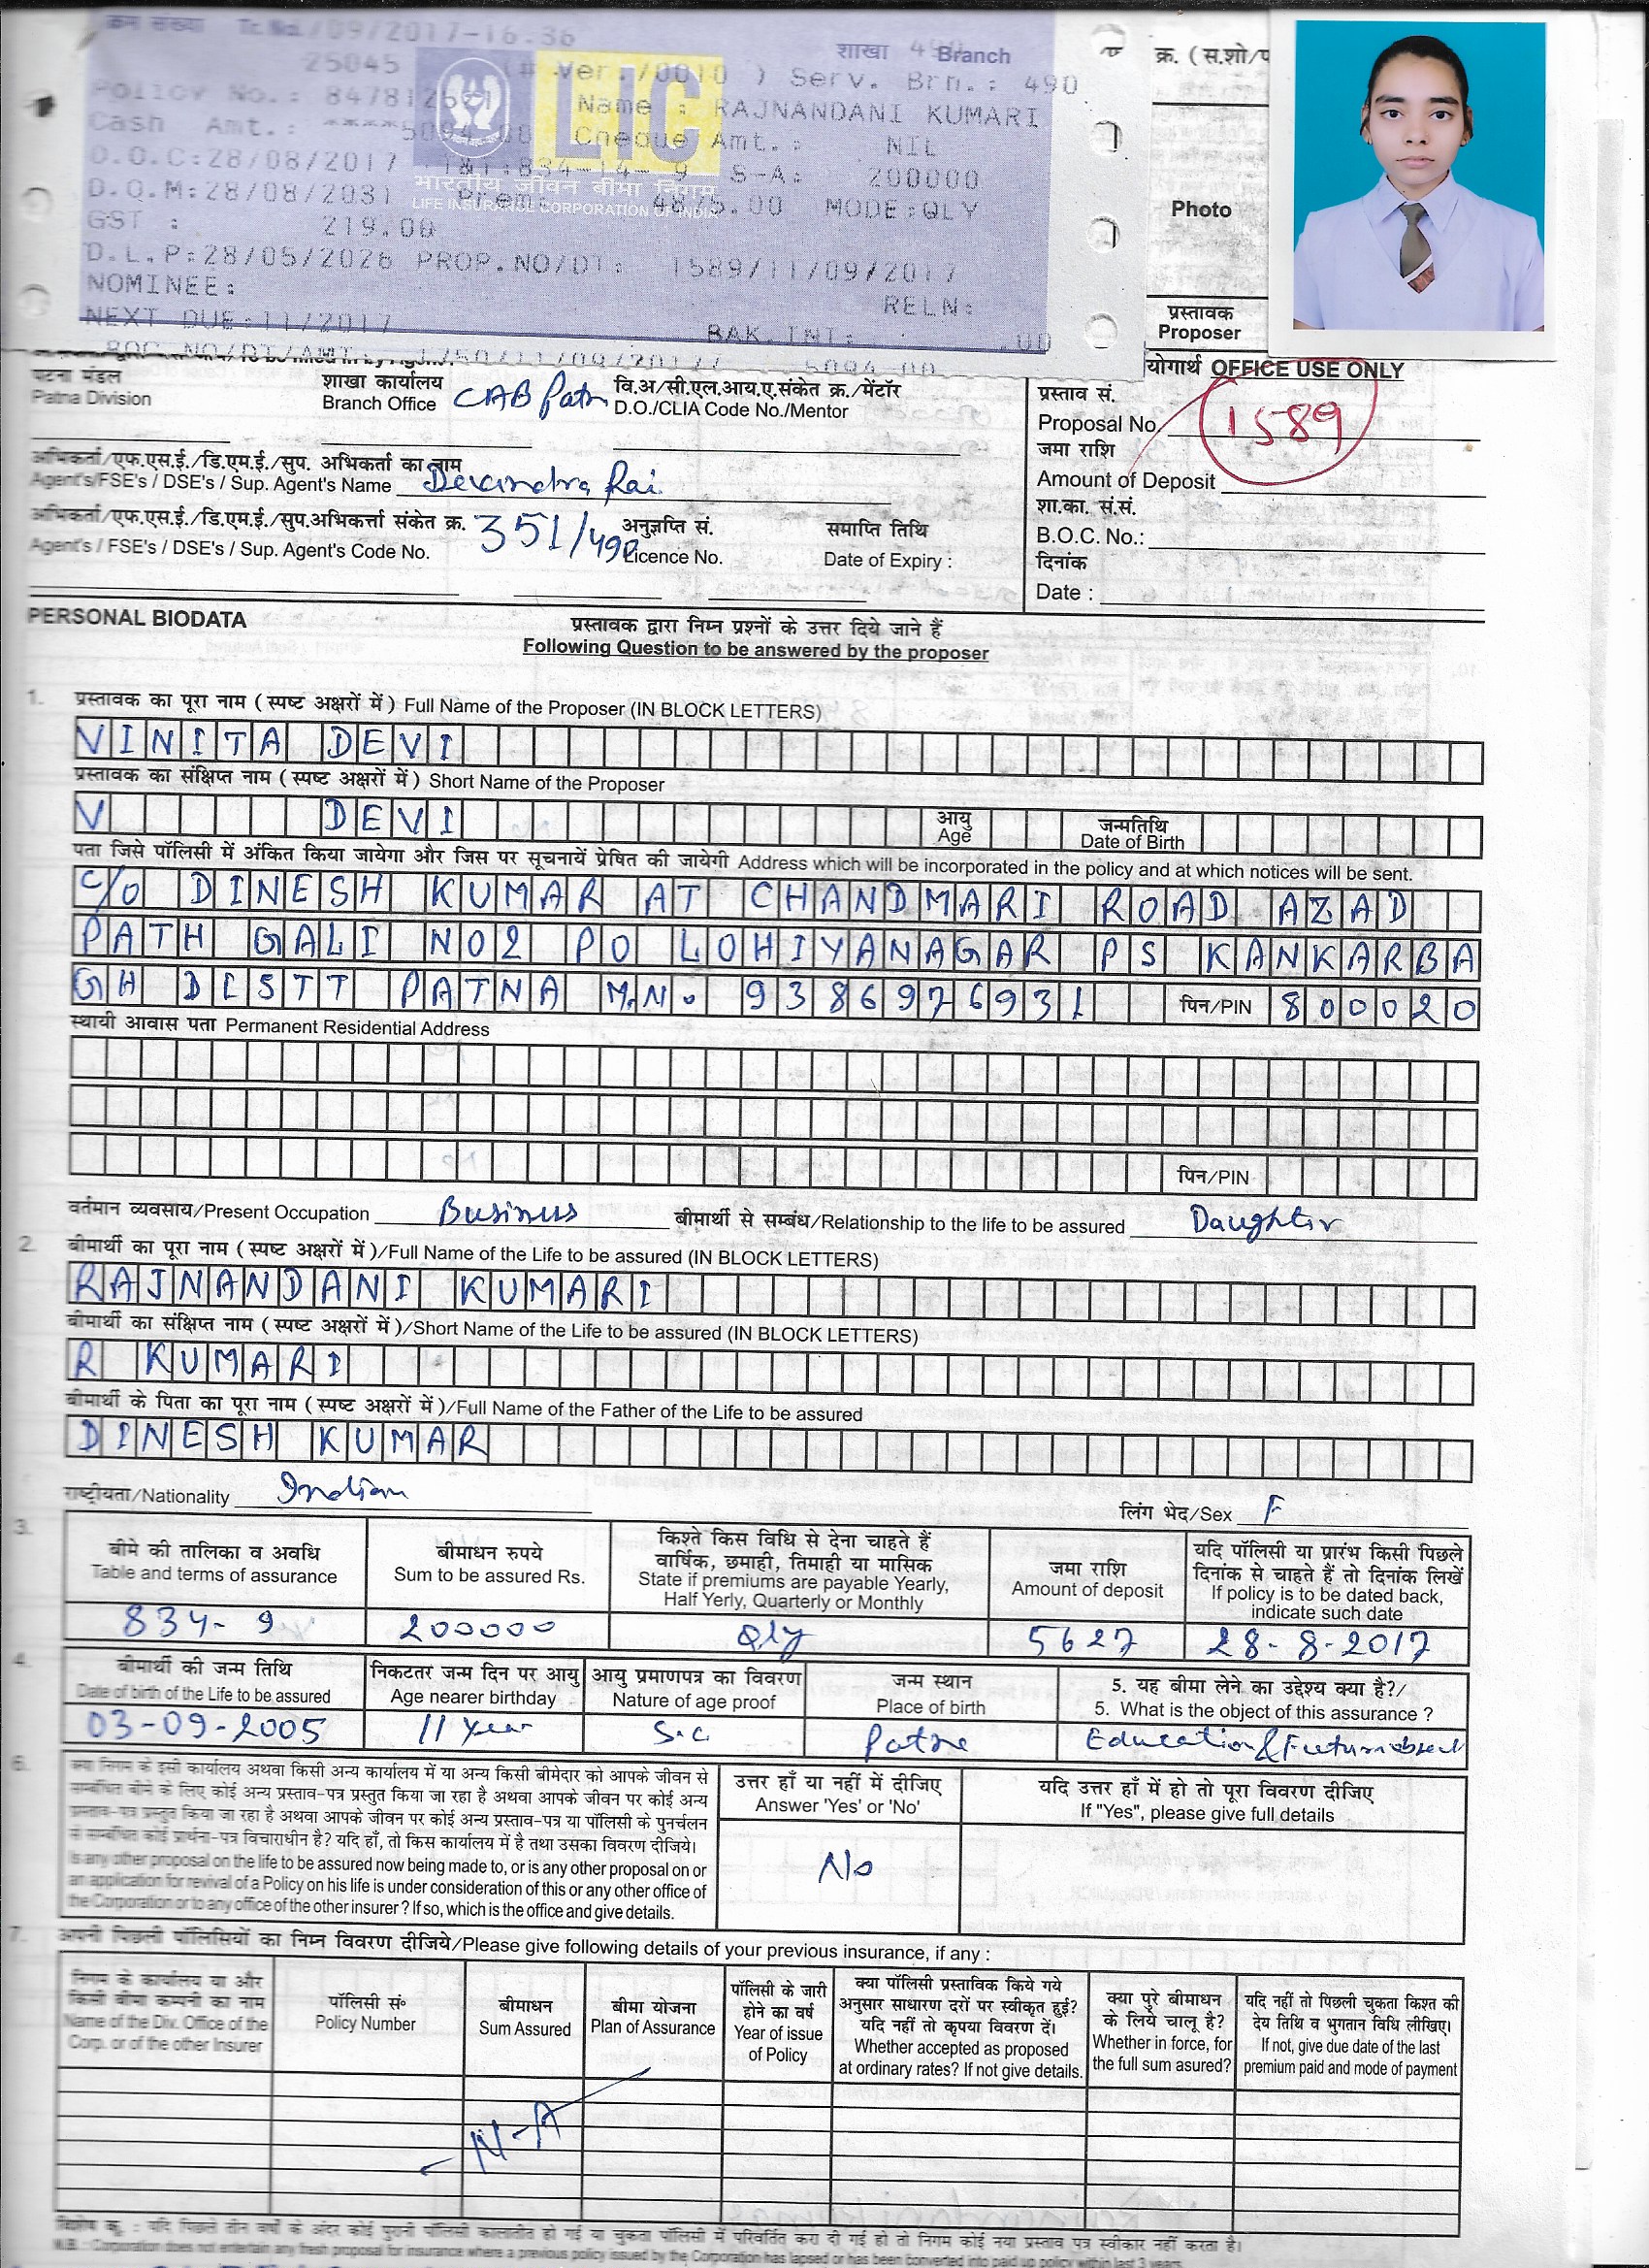 क्रम संख्या Tc.No./09/2017-16:36
शाखा 490 Branch
25045 (# Ver./0010 ) Serv. Brn.: 490
Policy No.: Name : RAJNANDANI KUMARI
Cash Amt.: ****5094.00 Cheque Amt.: NIL
D.O.C:28/08/2017 T&T:834-14- 9 S-A: 200000
LIC
भारतीय जीवन बीमा निगम
LIFE INSURANCE CORPORATION OF INDIA
D.O.M:28/08/2031 Prem: 4875.00 MODE:QLY
GST : 219.00
D.L.P:28/05/2026 PROP.NO/DT: 1589/11/09/2017
NOMINEE: RELN:
NEXT DUE:11/2017 BAK.INT: .00
BOC NO/DT/AMT 5094.00
क्र. (स.शो/प
Photo
प्रस्तावक
Proposer
योगार्थ OFFICE USE ONLY
पटना मंडल
Patna Division
शाखा कार्यालय
Branch Office CAB Patn
वि.अ/सी.एल.आय.ए.संकेत क्र./मेंटॉर
D.O./CLIA Code No./Mentor
अभिकर्ता/एफ.एस.ई./डि.एम.ई./सुप. अभिकर्ता का नाम
Agent's/FSE's / DSE's / Sup. Agent's Name Devendra Rai
अभिकर्ता/एफ.एस.ई./डि.एम.ई./सुप.अभिकर्त्ता संकेत क्र. 351/490
Agent's / FSE's / DSE's / Sup. Agent's Code No.
अनुज्ञप्ति सं.
Licence No.
समाप्ति तिथि
Date of Expiry :
प्रस्ताव सं.
Proposal No. 1589
जमा राशि
Amount of Deposit
शा.का. सं.सं.
B.O.C. No.:
दिनांक
Date :
PERSONAL BIODATA
प्रस्तावक द्वारा निम्न प्रश्नों के उत्तर दिये जाने हैं
Following Question to be answered by the proposer
1. प्रस्तावक का पूरा नाम ( स्पष्ट अक्षरों में ) Full Name of the Proposer (IN BLOCK LETTERS)
VINITA DEVI
प्रस्तावक का संक्षिप्त नाम ( स्पष्ट अक्षरों में ) Short Name of the Proposer
V DEVI
आयु
Age
जन्मतिथि
Date of Birth
पता जिसे पॉलिसी में अंकित किया जायेगा और जिस पर सूचनायें प्रेषित की जायेगी Address which will be incorporated in the policy and at which notices will be sent.
C/O DINESH KUMAR AT CHANDMARI ROAD AZAD
PATH GALI NO2 PO LOHIYANAGAR PS KANKARBA
GH DISTT PATNA M.N. 9386976931 पिन/PIN 800020
स्थायी आवास पता Permanent Residential Address
पिन/PIN
वर्तमान व्यवसाय/Present Occupation Business बीमार्थी से सम्बंध/Relationship to the life to be assured Daughter
2. बीमार्थी का पूरा नाम ( स्पष्ट अक्षरों में )/Full Name of the Life to be assured (IN BLOCK LETTERS)
RAJNANDANI KUMARI
बीमार्थी का संक्षिप्त नाम ( स्पष्ट अक्षरों में )/Short Name of the Life to be assured (IN BLOCK LETTERS)
R KUMARI
बीमार्थी के पिता का पूरा नाम ( स्पष्ट अक्षरों में )/Full Name of the Father of the Life to be assured
DINESH KUMAR
राष्ट्रीयता/Nationality Indian लिंग भेद/Sex F
3. बीमे की तालिका व अवधि
Table and terms of assurance
बीमाधन रुपये
Sum to be assured Rs.
किश्ते किस विधि से देना चाहते हैं
वार्षिक, छमाही, तिमाही या मासिक
State if premiums are payable Yearly,
Half Yerly, Quarterly or Monthly
जमा राशि
Amount of deposit
यदि पॉलिसी या प्रारंभ किसी पिछले
दिनांक से चाहते हैं तो दिनांक लिखें
If policy is to be dated back,
indicate such date
834- 9 200000 Qly 5627 28-8-2017
4. बीमार्थी की जन्म तिथि
Date of birth of the Life to be assured
निकटतर जन्म दिन पर आयु
Age nearer birthday
आयु प्रमाणपत्र का विवरण
Nature of age proof
जन्म स्थान
Place of birth
5. यह बीमा लेने का उद्देश्य क्या है?/
5. What is the object of this assurance ?
03-09-2005 11 Year S.C. Patna Education &
6. क्या निगम के इसी कार्यालय अथवा किसी अन्य कार्यालय में या अन्य किसी बीमेदार को आपके जीवन से
सम्बंधित बीमे के लिए कोई अन्य प्रस्ताव-पत्र प्रस्तुत किया जा रहा है अथवा आपके जीवन पर कोई अन्य
प्रस्ताव-पत्र प्रस्तुत किया जा रहा है अथवा आपके जीवन पर कोई अन्य प्रस्ताव-पत्र या पॉलिसी के पुनर्चलन
से सम्बंधित कोई प्रार्थना-पत्र विचाराधीन है? यदि हाँ, तो किस कार्यालय में है तथा उसका विवरण दीजिये।
Is any other proposal on the life to be assured now being made to, or is any other proposal on or
an application for revival of a Policy on his life is under consideration of this or any other office of
the Corporation or to any office of the other insurer ? If so, which is the office and give details.
उत्तर हाँ या नहीं में दीजिए
Answer 'Yes' or 'No'
यदि उत्तर हाँ में हो तो पूरा विवरण दीजिए
If "Yes", please give full details
No
7. अपनी पिछली पॉलिसियों का निम्न विवरण दीजिये/Please give following details of your previous insurance, if any :
निगम के कार्यालय या और
किसी बीमा कम्पनी का नाम
Name of the Div. Office of the
Corp. or of the other Insurer
पॉलिसी सं॰
Policy Number
बीमाधन
Sum Assured
बीमा योजना
Plan of Assurance
पॉलिसी के जारी
होने का वर्ष
Year of issue
of Policy
क्या पॉलिसी प्रस्ताविक किये गये
अनुसार साधारण दरों पर स्वीकृत हुई?
यदि नहीं तो कृपया विवरण दें।
Whether accepted as proposed
at ordinary rates? If not give details.
क्या पुरे बीमाधन
के लिये चालू है?
Whether in force, for
the full sum asured?
यदि नहीं तो पिछली चुकता किश्त की
देय तिथि व भुगतान विधि लीखिए।
If not, give due date of the last
premium paid and mode of payment
N-A
यदि पिछले तीन वर्षों के अंदर कोई पुरानी पॉलिसी कालातीत हो गई या चुकता पॉलिसी में परिवर्तित करा दी गई हो तो निगम कोई नया प्रस्ताव पत्र स्वीकार नहीं करता है।
N.B. : Corporation does not entertain any fresh proposal for insurance where a previous policy issued by the Corporation has lapsed or has been converted into paid up policy within last 3 years.